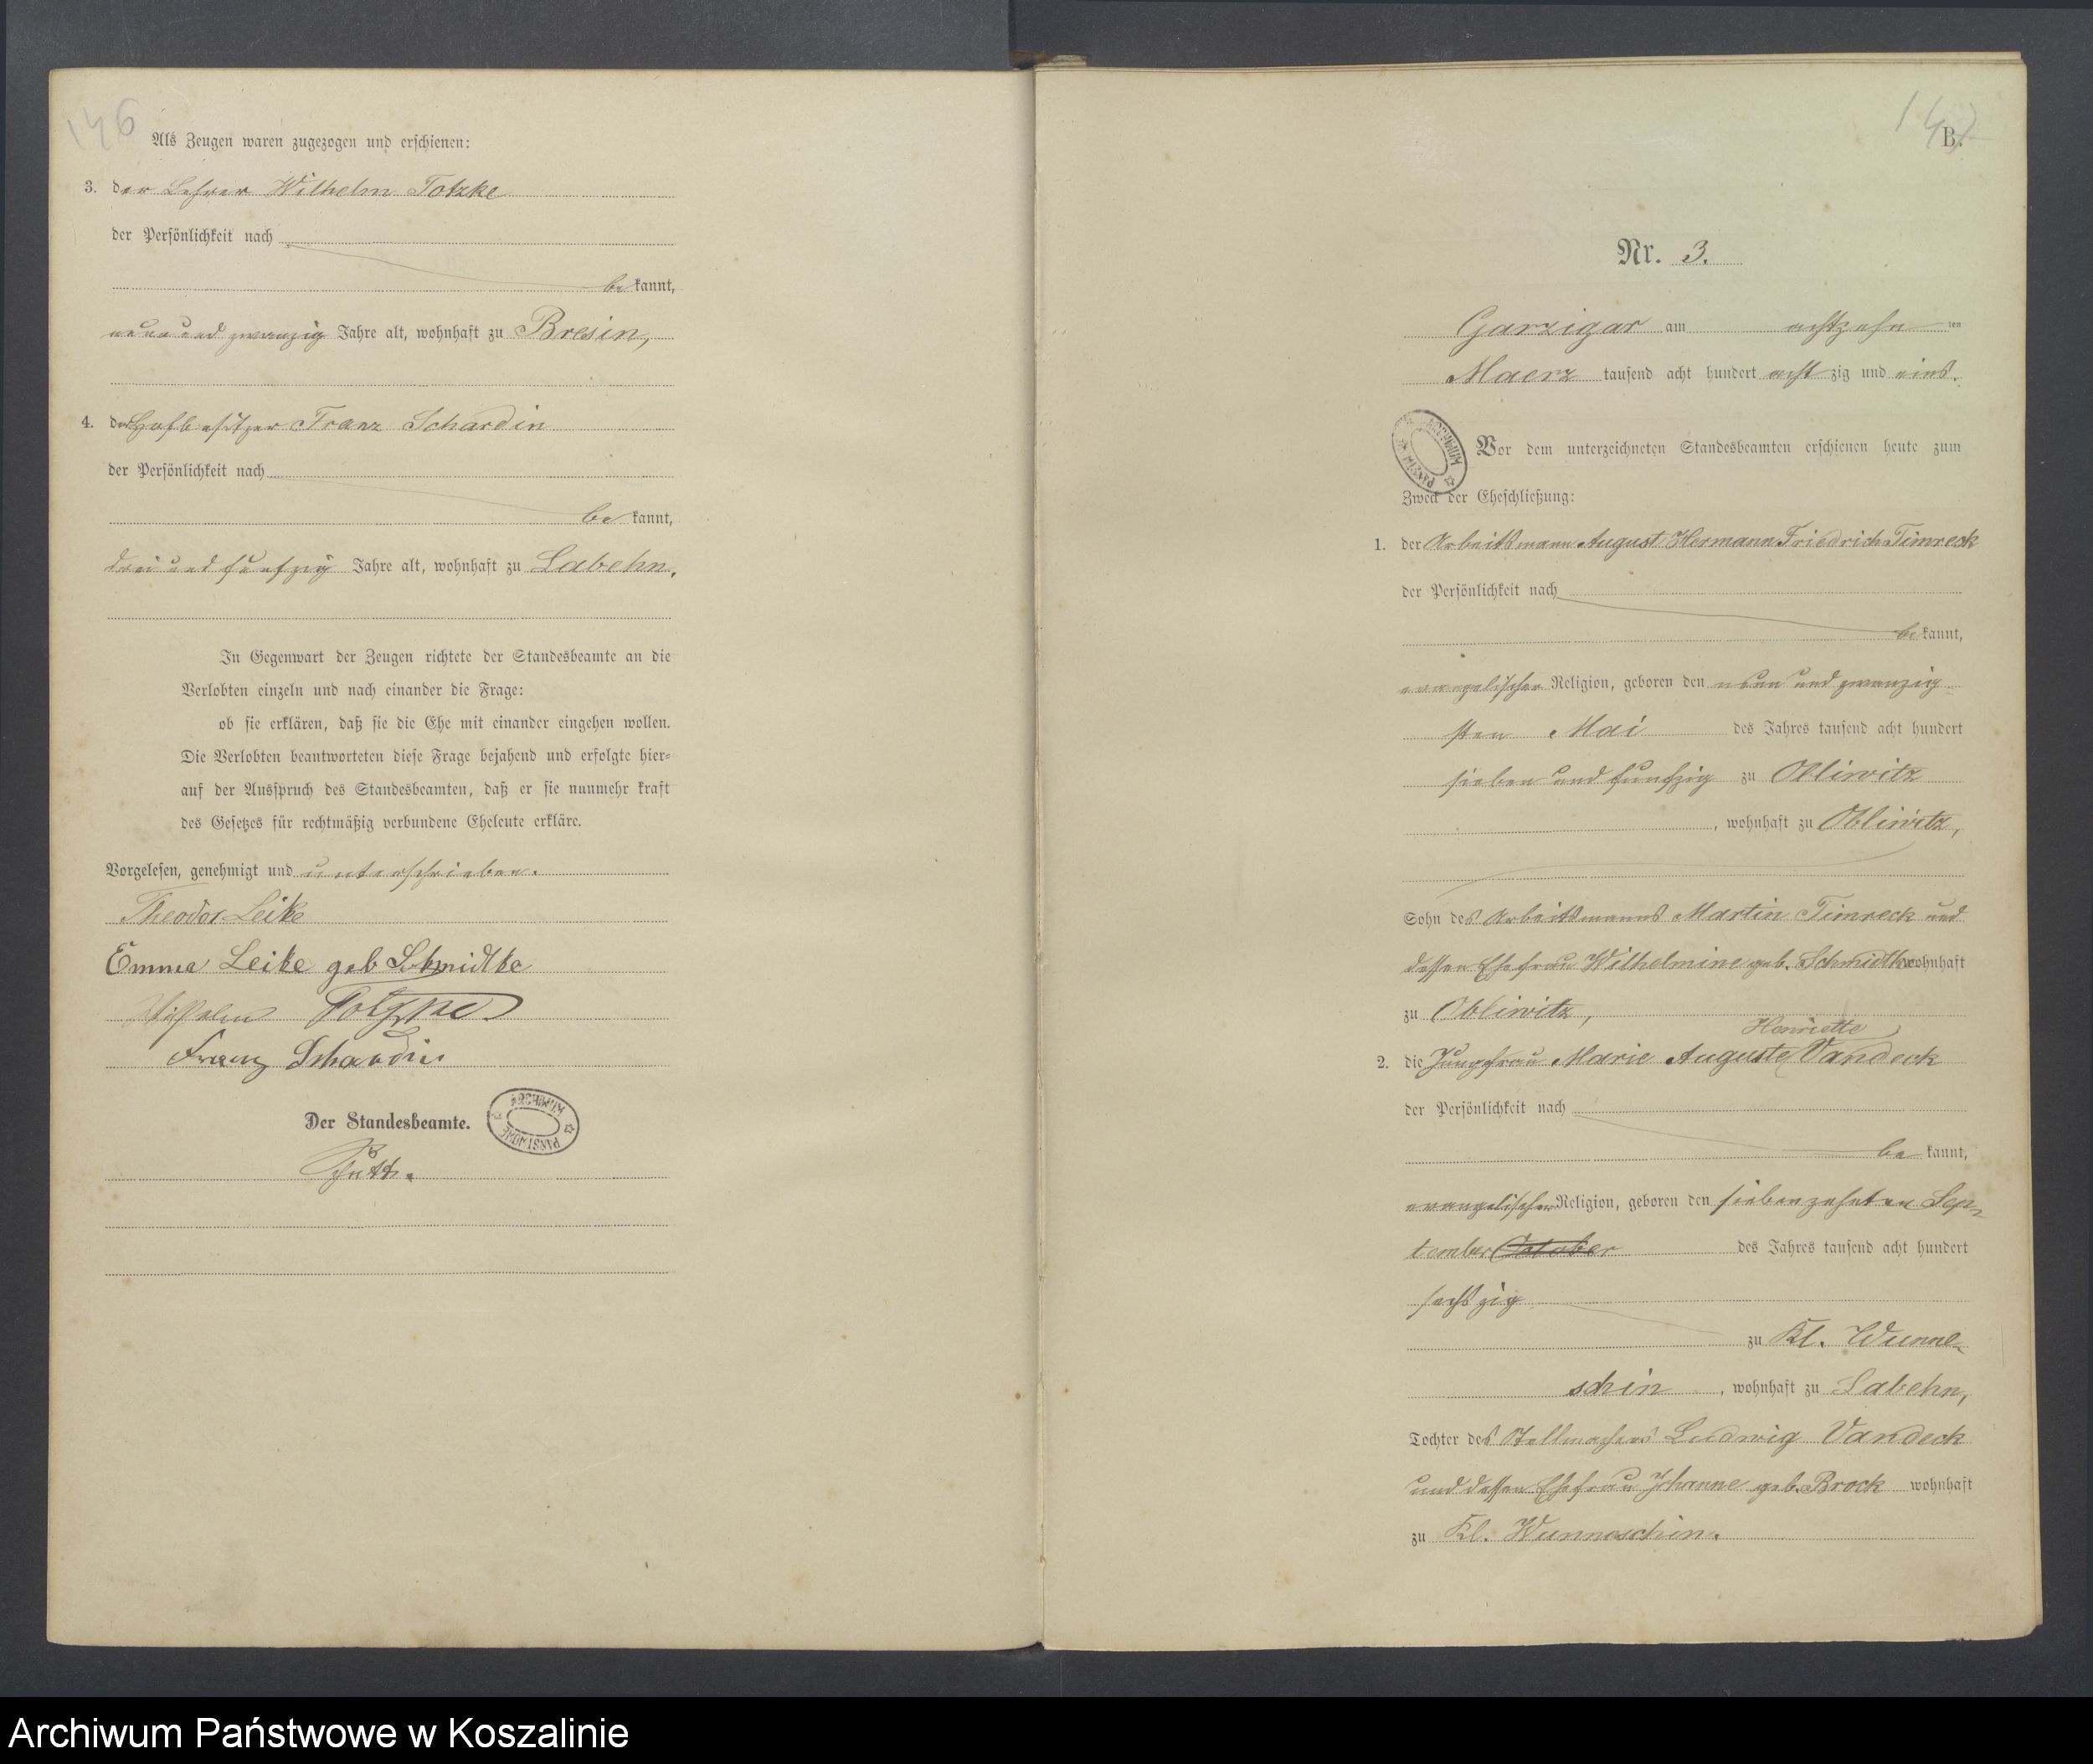 146
Als Zeugen waren zugezogen und erschienen:
3. der Lehrer Wilhelm Totzke
der Persönlichkeit nach
bekannt,
neun und zwanzig Jahre alt, wohnhaft zu Bresin,
4. der Hofbesitzer Franz Schardin
der Persönlichkeit nach
bekannt,
drei und funfzig Jahre alt, wohnhaft zu Labehn.
In Gegenwart der Zeugen richtete der Standesbeamte an die
Verlobten einzeln und nach einander die Frage:
ob sie erklären, daß sie die Ehe mit einander eingehen wollen.
Die Verlobten beantworteten diese Frage bejahend und erfolgte hier-
auf der Ausspruch des Standesbeamten, daß er sie nunmehr kraft
des Gesetzes für rechtmäßig verbundene Eheleute erkläre.
Vorgelesen, genehmigt und unterschrieben.
Theodor Leike
Emma Leike geb Schmidtke
Wilhelm Totzke
Franz Schardin
Der Standesbeamte.
ARCHIWUM PAŃSTWOWE
147
B.
Nr. 3.
Garzigar am achtzehnten
Maerz tausend acht hundert achtzig und eins.
ARCHIWUM PAŃSTWOWE
Vor dem unterzeichneten Standesbeamten erschienen heute zum
Zweck der Eheschließung:
1. der Arbeitsmann August Hermann Friedrich Timreck
der Persönlichkeit nach
bekannt,
evangelischer Religion, geboren den neun und zwanzig
sten Mai des Jahres tausend acht hundert
sieben und funfzig zu Obliwitz
, wohnhaft zu Obliwitz,
Sohn des Arbeitsmanns Martin Timreck und
dessen Ehefrau Wilhelmine geb. Schmidtke wohnhaft
zu Obliwitz,
Henriette
2. die Jungfrau Marie Auguste Vandeck
der Persönlichkeit nach
bekannt,
evangelischer Religion, geboren den siebenzehnten Sep-
tember October des Jahres tausend acht hundert
sechszig
zu Kl. Wunne-
schin, wohnhaft zu Labehn,
Tochter des Stellmachers Ludwig Vandeck
und dessen Ehefrau Johanne geb. Brock wohnhaft
zu Kl. Wunneschin.
Archiwum Państwowe w Koszalinie